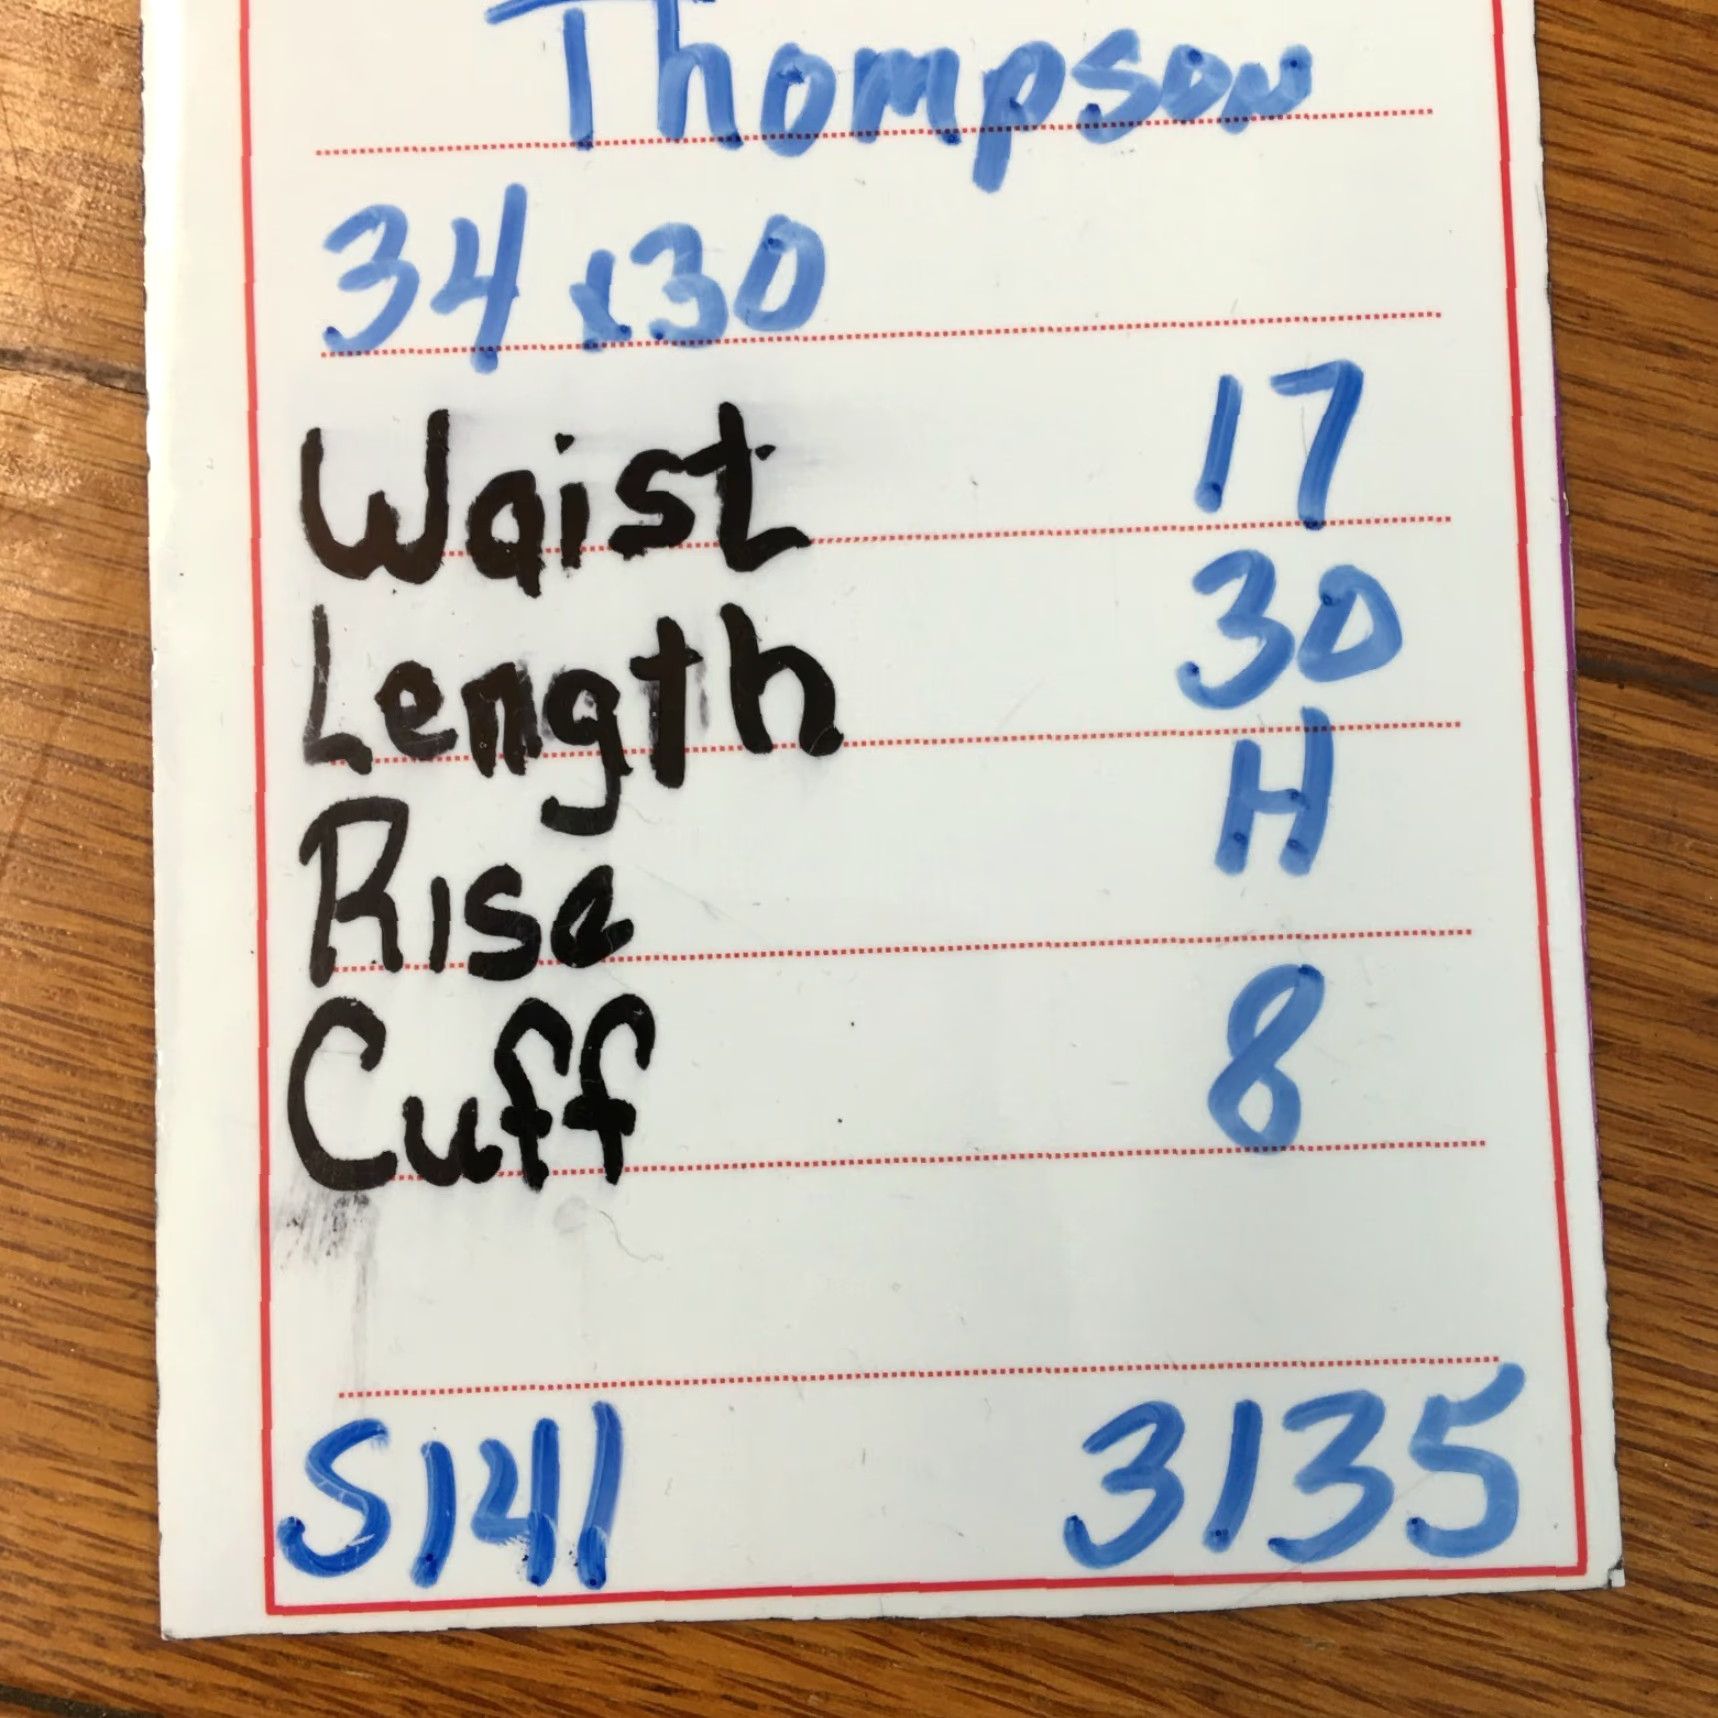 Thompson
34x30
Waist 17
Length 30
Rise H
Cuff 8
S141 3135